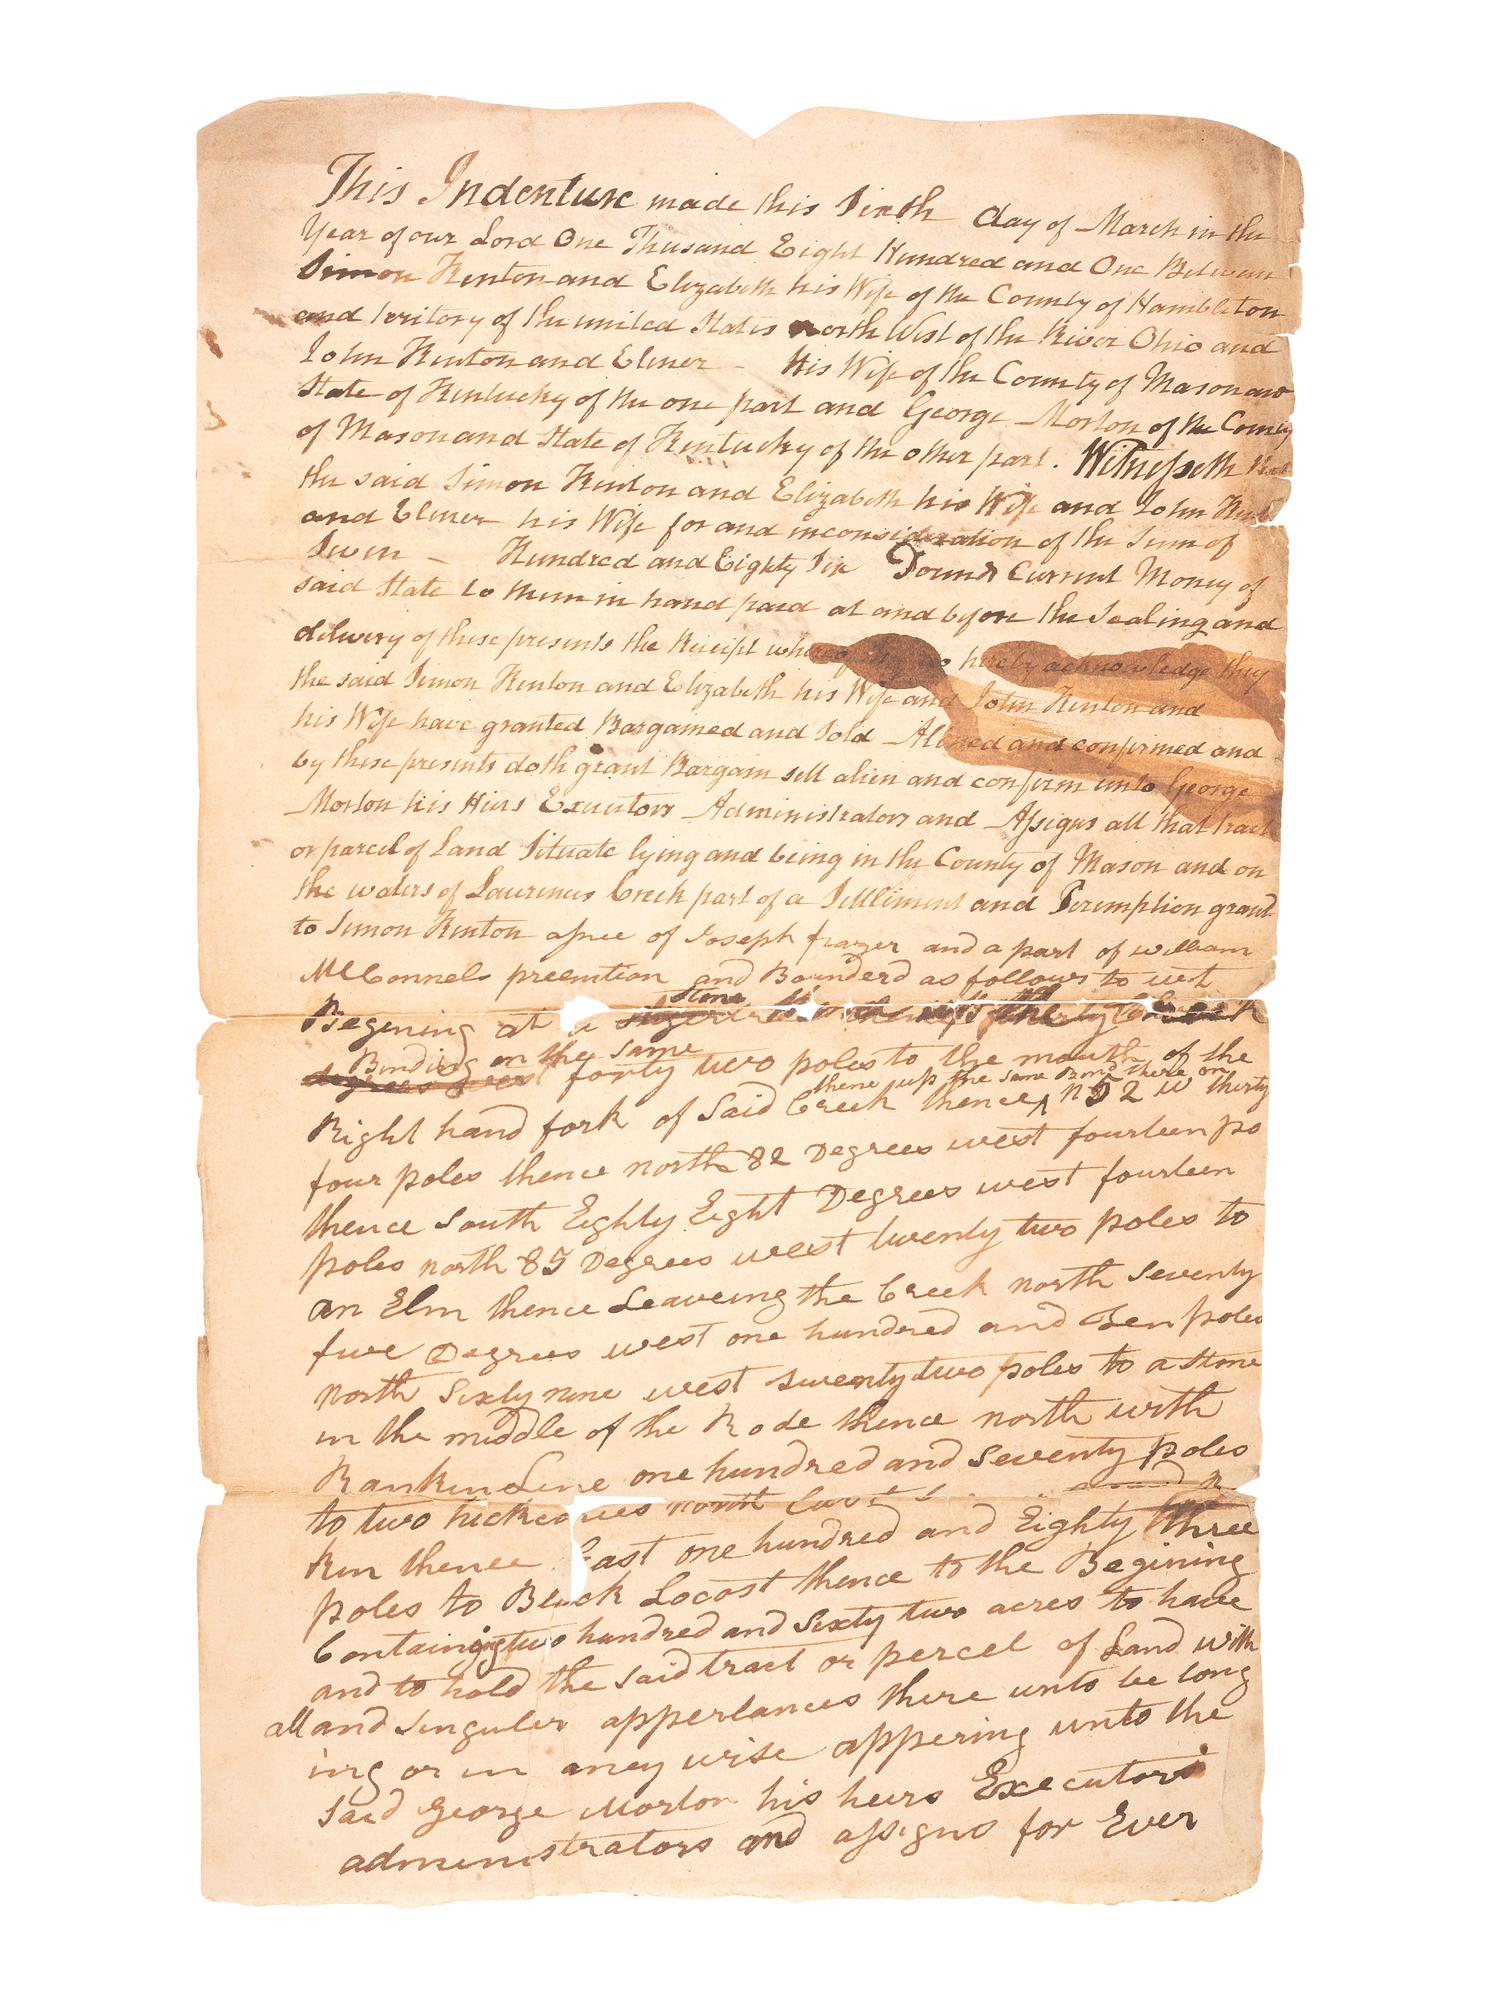 This Indenture made this Sixth day of March in the
Year of our Lord One Thusand Eight Hundred and One Between
Simon Kenton and Elizabeth his Wife of the County of Hambleton
and teritory of the united States north West of the River Ohio and
John Kenton and Elener his Wife of the County of Mason and
State of Kentucky of the one part and George Morton of the County
of Mason and State of Kentucky of the other part. Witnesseth that
the said Simon Kenton and Elizabeth his Wife and John Kenton
and Elener his Wife for and in consideration of the Sum of
Seven Hundred and Eighty Six Pounds Current Money of
said State to them in hand paid at and before the Sealing and
delivery of these presents the Receipt whereof they do hereby acknowledge they
the said Simon Kenton and Elizabeth his Wife and John Kenton and
his Wife have granted Bargained and Sold Aliened and confirmed and
by these presents doth grant Bargain sell alien and confirm unto George
Morton his Hiers Executors Administrators and Assigns all that tract
or parcel of Land Situate lying and being in the County of Mason and on
the waters of Laurences Creek part of a Settlement and Preemption grant
to Simon Kenton asnee of Joseph frazer and a part of william
McConnels preemtion and Bounderd as follows to wit
Stone
Begining at a
Binding on the same
forty two poles to the mouth of the
thene up the same Bind there on
Right hand fork of Said Creek thence n 52 w thirty
four poles thence north 82 Degrees west fourteen po
thence South Eighty Eight Degrees west fourteen
poles north 85 Degrees west twenty two poles to
an Elm thence Leaveing the Creek north Seventy
five Degrees west one hundred and Ten poles
north Sixty nine west twenty two poles to a Stone
in the middle of the Rode thence north with
Rankin Line one hundred and Seventy poles
to two hickories north East
Run thence East one hundred and Eighty three
poles to Black Locost thence to the Begining
Containing two hundred and Sixty two acres to have
and to hold the said tract or percel of Land with
all and Singuler appertances there unto be long
ing or in aney wise appering unto the
Said George Morton his heirs Executors
administrators and assigns for Ever